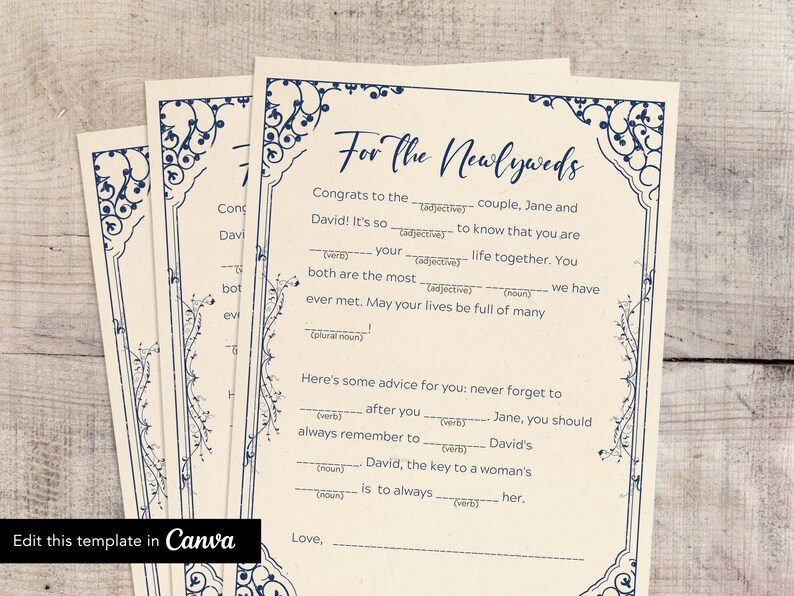 For the Newlyweds
Congrats to the __________ couple, Jane and
(adjective)
David! It's so __________ to know that you are
(adjective)
__________ your __________ life together. You
(verb) (adjective)
both are the most __________ __________ we have
(adjective) (noun)
ever met. May your lives be full of many
__________!
(plural noun)
Here's some advice for you: never forget to
__________ after you __________. Jane, you should
(verb) (verb)
always remember to __________ David's
(verb)
__________. David, the key to a woman's
(noun)
__________ is to always __________ her.
(noun) (verb)
Love, ________________________________________
Cong
David
both
eve
Edit this template in Canva